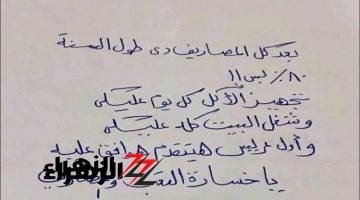 بعد كل المصاريف دي طول السنة
٨٠٪ بس !!
تجهيز الأكل كل يوم عليكي
وشغل البيت كله عليكي
وأول عريس هيتقدم هوافق عليه
يا خسارة
الزهراء